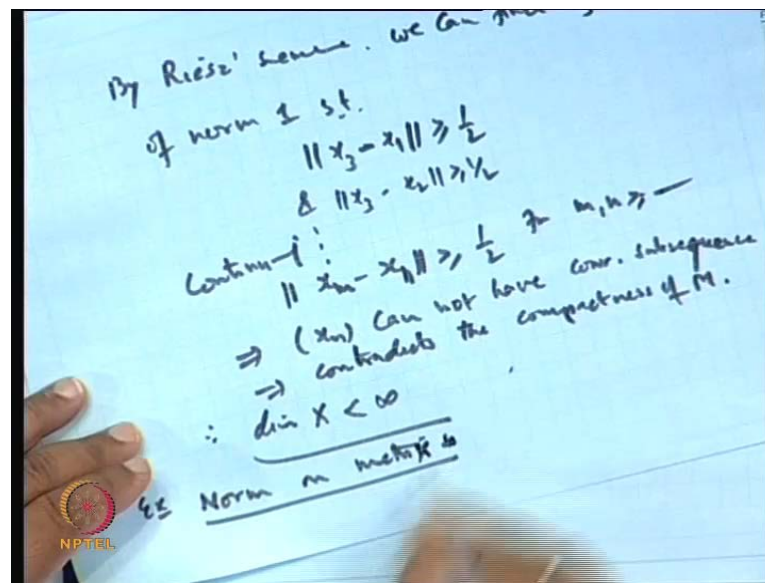 By Riesz' . we can
of norm 1 s.t.
|| x₃ - x₁ || ≥ 1/2
& || x₃ - x₂ || ≥ 1/2
Continu ⋮
|| xₘ - xₙ || ≥ 1/2 m, n ≥ —
⇒ (xₙ) can not have conv. subsequence
⇒ contradicts the compactness of M.
∴ dim X < ∞
Ex Norm on
NPTEL